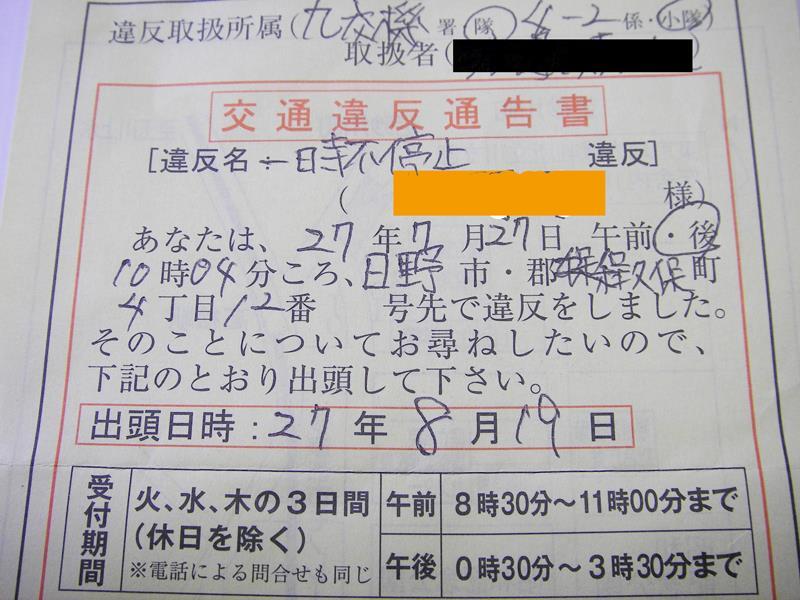 違反取扱所属(九交機 署・隊 4-2 係・小隊)
取扱者(
交通違反通告書
[違反名 一時不停止 違反]
( 様)
あなたは、27年7月27日 午前・後
10時04分ころ、日野市・郡 久保町
4丁目12番 号先で違反をしました。
そのことについてお尋ねしたいので、
下記のとおり出頭して下さい。
出頭日時:27年8月19日
受付期間
火、水、木の3日間
(休日を除く)
※電話による問合せも同じ
午前 8時30分〜11時00分まで
午後 0時30分〜3時30分まで